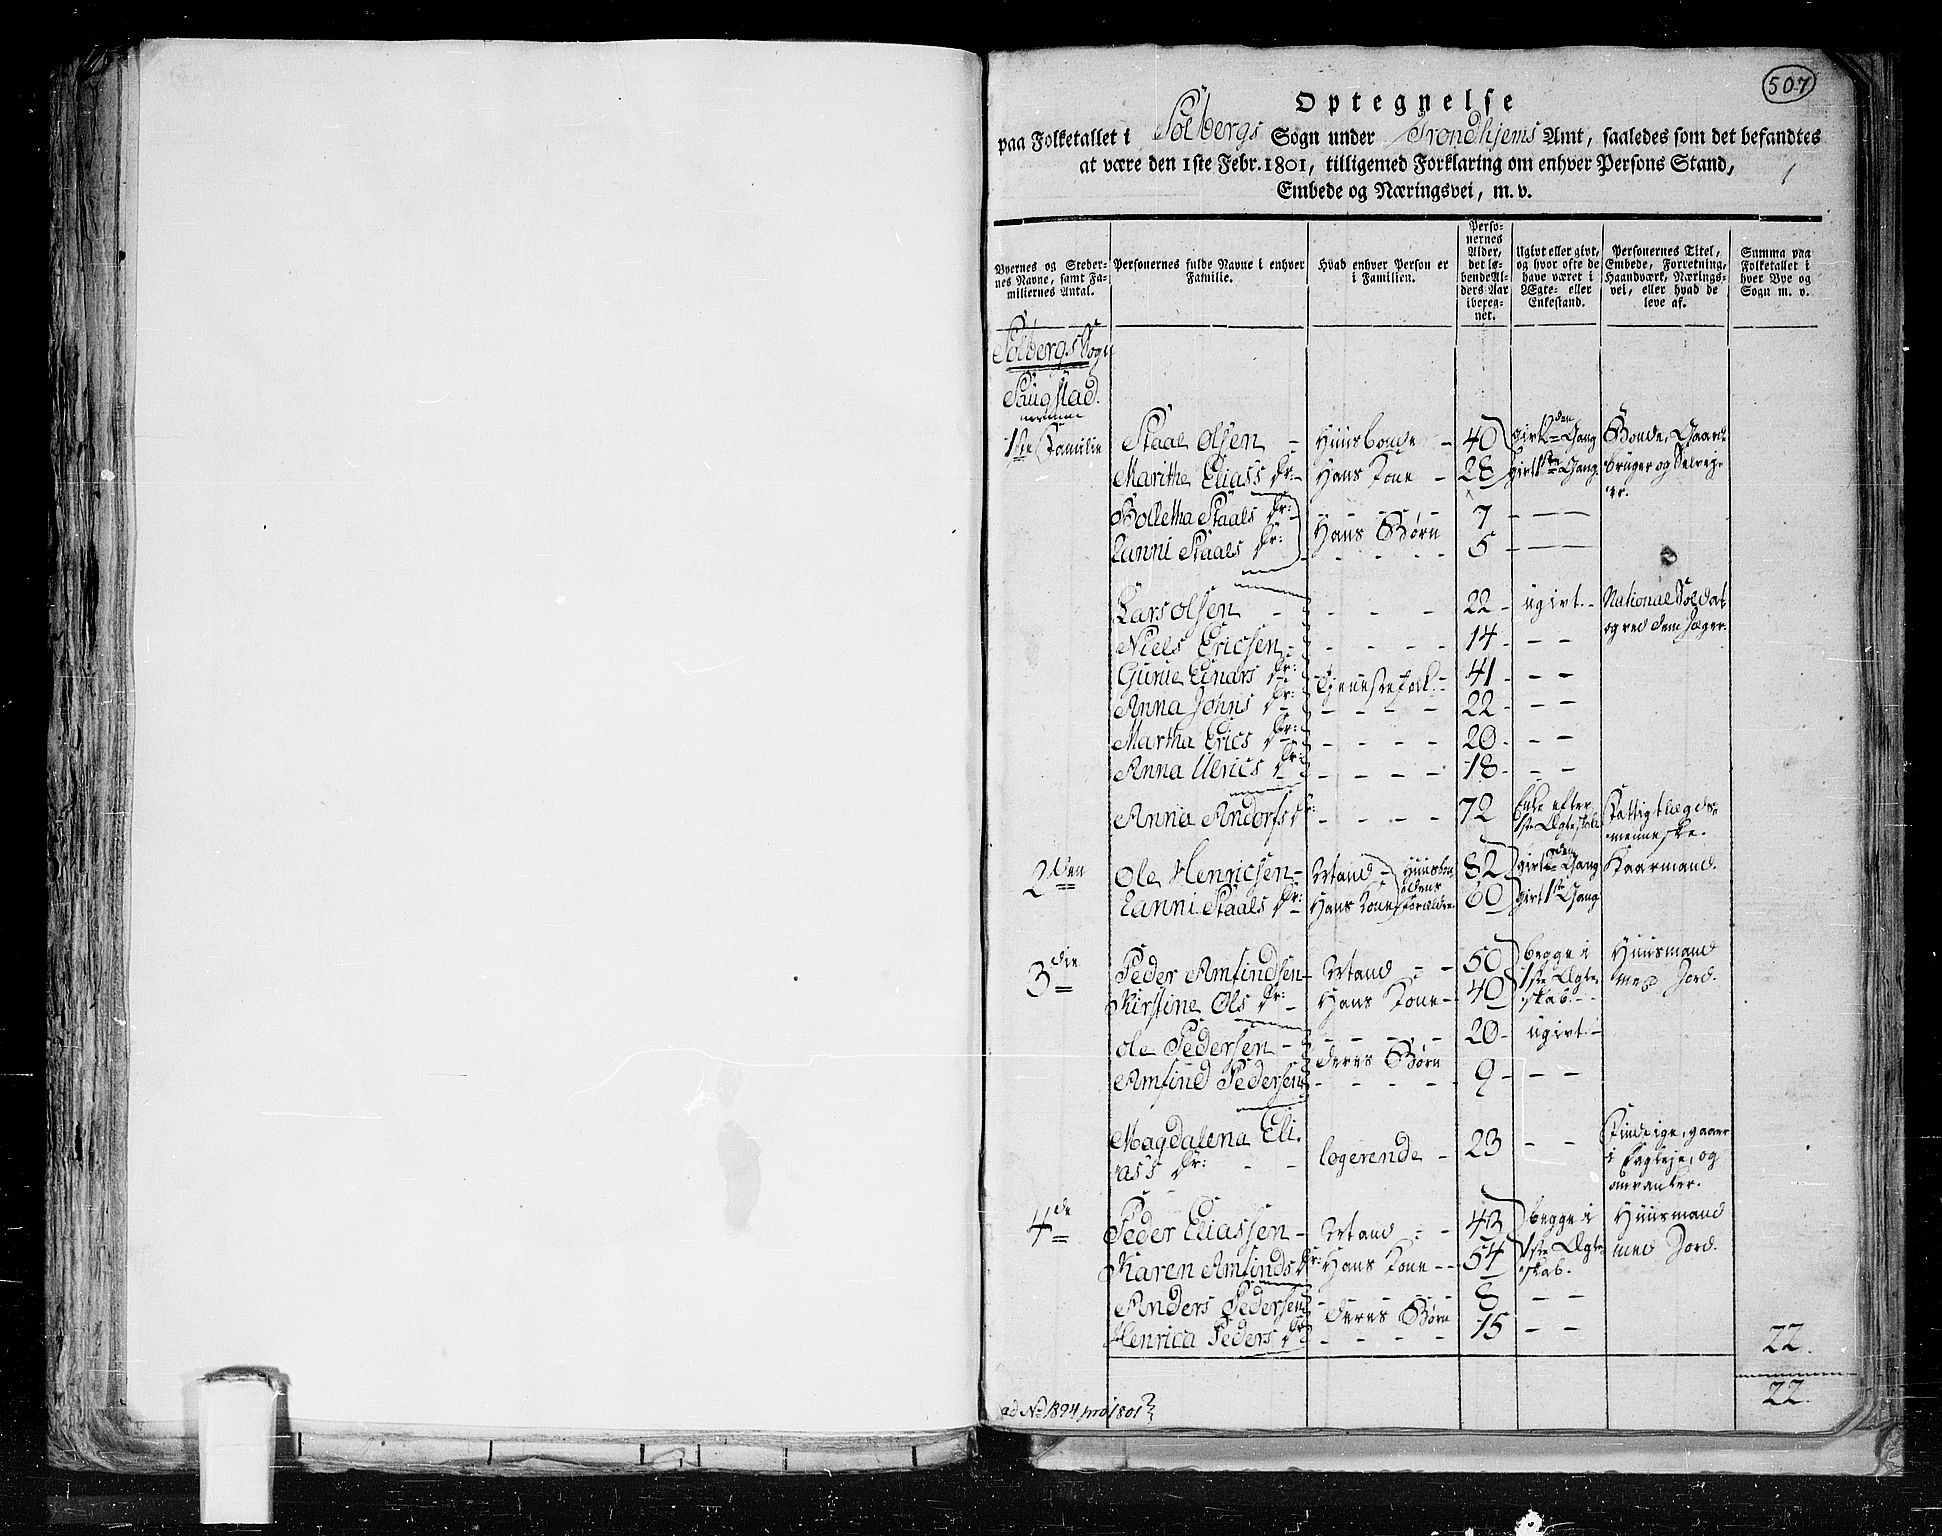 507
Optegnelse
paa Folketallet i Solbergs Sogn under Trondhjems Amt, saaledes som det befandtes
at være den 1ste Febr. 1801, tilligemed Forklaring om enhver Persons Stand,
Embede og Næringsvei, m. v.
1
Byernes og Steder-
nes Navne, samt Fa-
miliernes Antal.
Personernes fulde Navne i enhver
Familie.
Hvad enhver Person er
i Familien.
Perso-
nernes
Alder,
det lø-
bende Al-
ders Aar
ibereg-
net.
Ugivt eller givt,
og hvor ofte de
have været i
Ægte- eller
Enkestand.
Personernes Titel,
Embede, Forretning,
Haandværk, Nærings-
vei, eller hvad de
leve af.
Summa paa
Folketallet i
hver Bye og
Sogn m. v.
Solbergs Sogn
Saugstad.
1ste Familie Staal Olsen - Huusbonde - 40 givt 2den Gang Bonde, Gaard-
Marithe Eliass Dr: - Hans Kone - 28 givt 1ste Gang bruger og Selveij-
er.
Bolletha Staals Dr: 7 - - -
Hans Børn
Lanni Staals Dr: 5 - - -
Lars Olsen - - - - 22 - ugivt. - National Soldat
Niels Ericsen - - - - 14 - - - og ved dem Jæger.
Gurue Einars Dr: Tjenestefolk. - 41 - - -
Anna Johns Dr: - - - - 22 - - -
Martha Erics Dr: - - - - 20 - - -
Anna Ulrics Dr: - - - - 18 - - -
Anna Andorfs Dr: - - - - 72 Enke efter Fattigt lægds-
1ste Ægteskab menneske.
2den Ole Henricsen - Mand - Huusbon- 82 givt 2den Gang Kaarmand.
Lanni Staals Dr: Hans Kone dens Forældre 60 givt 1ste Gang
3die Peder Amfindsen - Mand - - 50 begge i Huusmand
Kirstine Ols Dr: - Hans Kone - - 40 1ste Ægte- med Jord.
skab. - -
Ole Pedersen - - - - - 20 - ugivt. -
deres Børn
Amfind Pedersen - - - - 9 - - -
Magdalena Eli-
ass Dr: - - logerende - 23 - - i og
4de Peder Eliassen - Mand - - 43 begge i Huusmand
Karen Amfinds Dr: Hans Kone - - 54 1ste Ægte- med Jord.
skab.
Anders Pedersen 8 - - -
deres Børn
Henrica Peders Dr: - - - - 15 - - -
22.
22.
ad No 1894 pro 1801